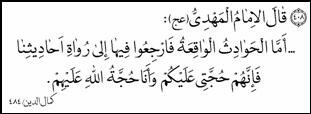 ٤٠٨ قَالَ الإِمَامُ المَهْدِيُّ (عج):
... أَمَّا الْحَوَادِثُ الْوَاقِعَةُ فَارْجِعُوا فِيهَا إِلَىٰ رُوَاةِ أَحَادِيثِنَا
فَإِنَّهُمْ حُجَّتِي عَلَيْكُمْ وَأَنَا حُجَّةُ اللهِ عَلَيْهِمْ.
كمال الدين ٤٨٤